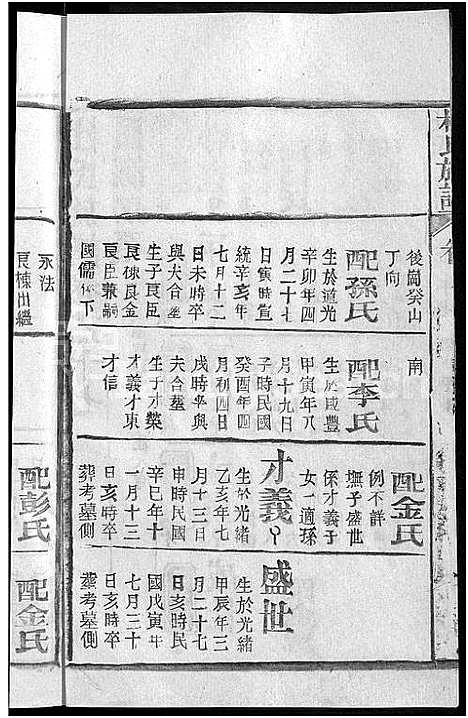 後崗癸山
丁向
配孫氏
生於道光
辛卯年四
月二十七
日寅時宣
統辛亥年
七月十二
日未時卒
與夫合塋
生子良臣
良棟良金
良臣兼嗣
國儒位下
南
配李氏
生於咸豐
甲寅年八
月十九日
子時民國
癸酉年四
月初四日
戌時卒與
夫合塋
生子才榮
才義才東
才信
配金氏
例不詳
撫子盛世
係才義子
女一適孫
才義
生於光緒
乙亥年七
月十三日
申時民國
辛巳年十
一月十三
日亥時卒
葬考墓側
盛世
生於光緒
甲辰年三
月二十七
日亥時民
國戊寅年
七月三十
日亥時卒
葬考墓側
永法
良棟出繼
配彭氏
配金氏